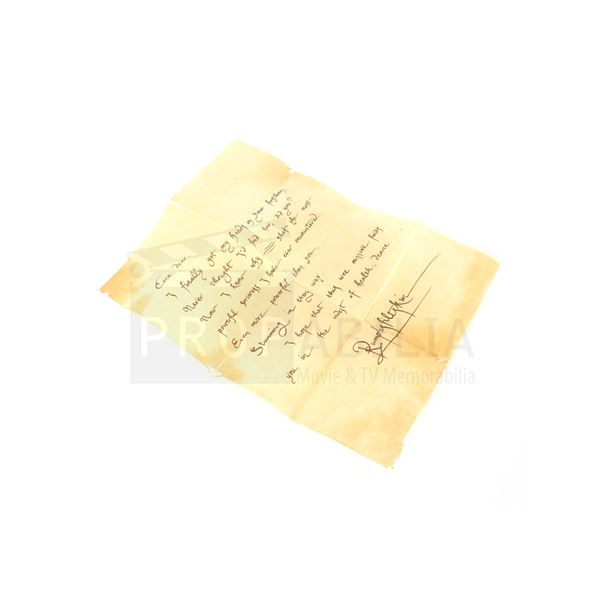 Cora, dear,
I finally got my hands on your
Never thought I'd did you?
Now I know why she's the most
powerful sorceress I have ever encountered
Even more powerful than you.
Stunning in every way.
I hope that they were missive finds
you in the midst of health, Dearie
Rumplestiltskin
PROPABILIA
Movie & TV Memorabilia